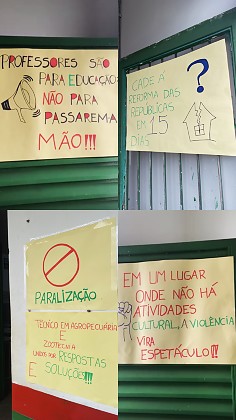 PROFESSORES SÃO
PARA EDUCAÇÃO:
NÃO PARA
PASSAREM A
MÃO!!!
CADÊ A ?
REFORMA DAS
REPÚBLICAS
EM 15
DIAS
PARALIZAÇÃO
TÉCNICO EM AGROPECUÁRIA
E
ZOOTECNIA
UNIDOS POR RESPOSTAS
E SOLUÇÕES!!!
EM UM LUGAR
ONDE NÃO HÁ
ATIVIDADES
CULTURAL, A VIOLÊNCIA
VIRA
ESPETÁCULO!!!